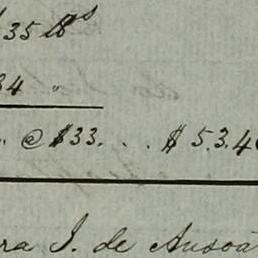 35 lbs
34 "
" @ $33. . . $ 5.3.4
ra J. de Ansoa